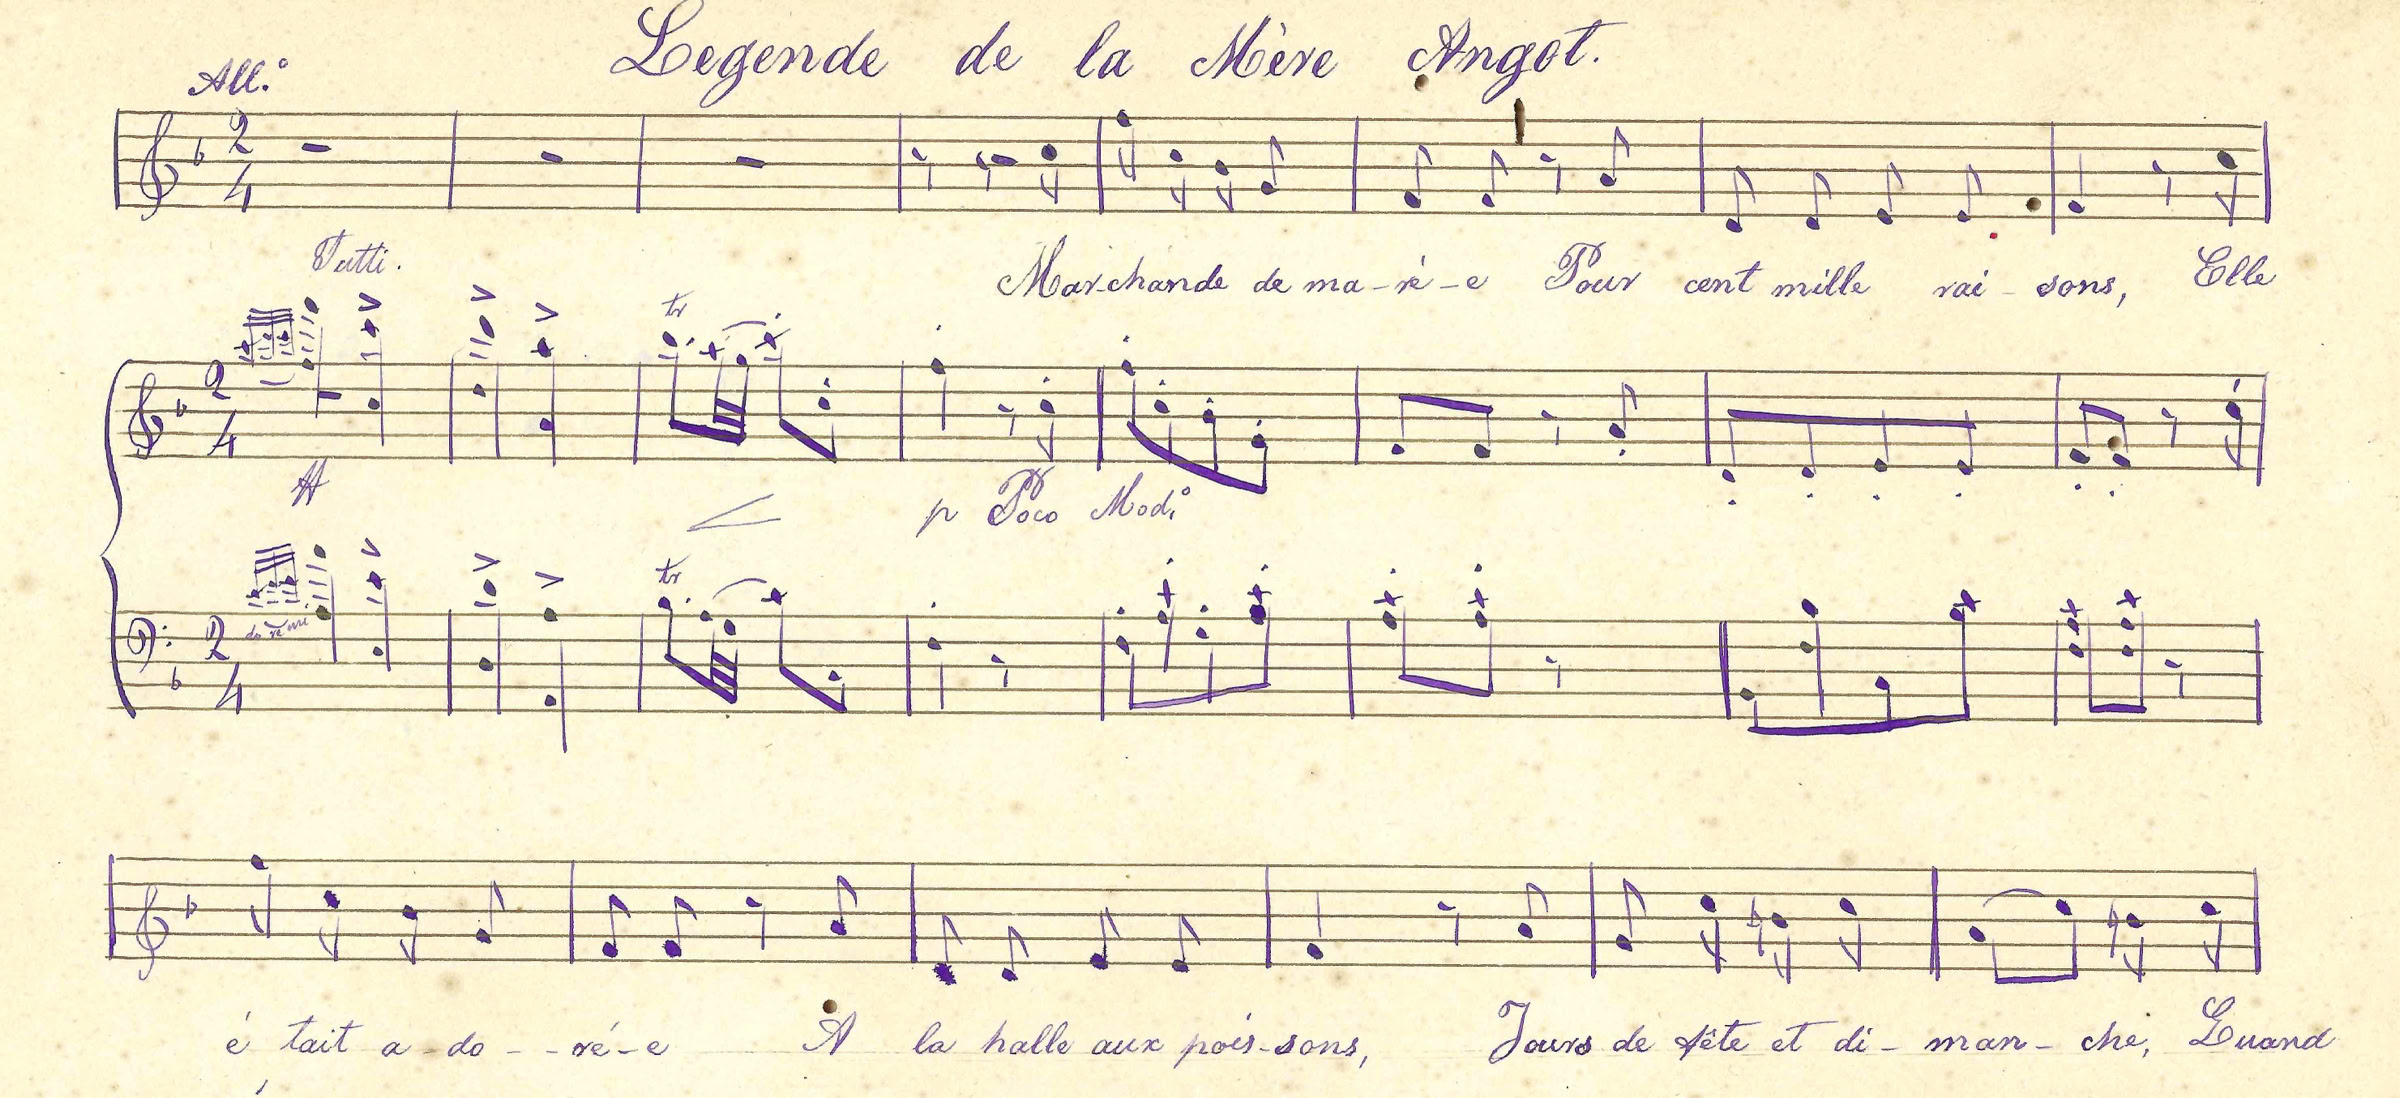 Legende de la Mère Angot.
All.º
2 4
Tutti.
Marchande de ma-ré-e Pour cent mille rai-sons, Elle
tr
2 4
ff p Poco Mod.º
tr
do re mi
2 4
é tait a-do--ré-e A la halle aux pois-sons, Jours de fête et di-man-che, Quand